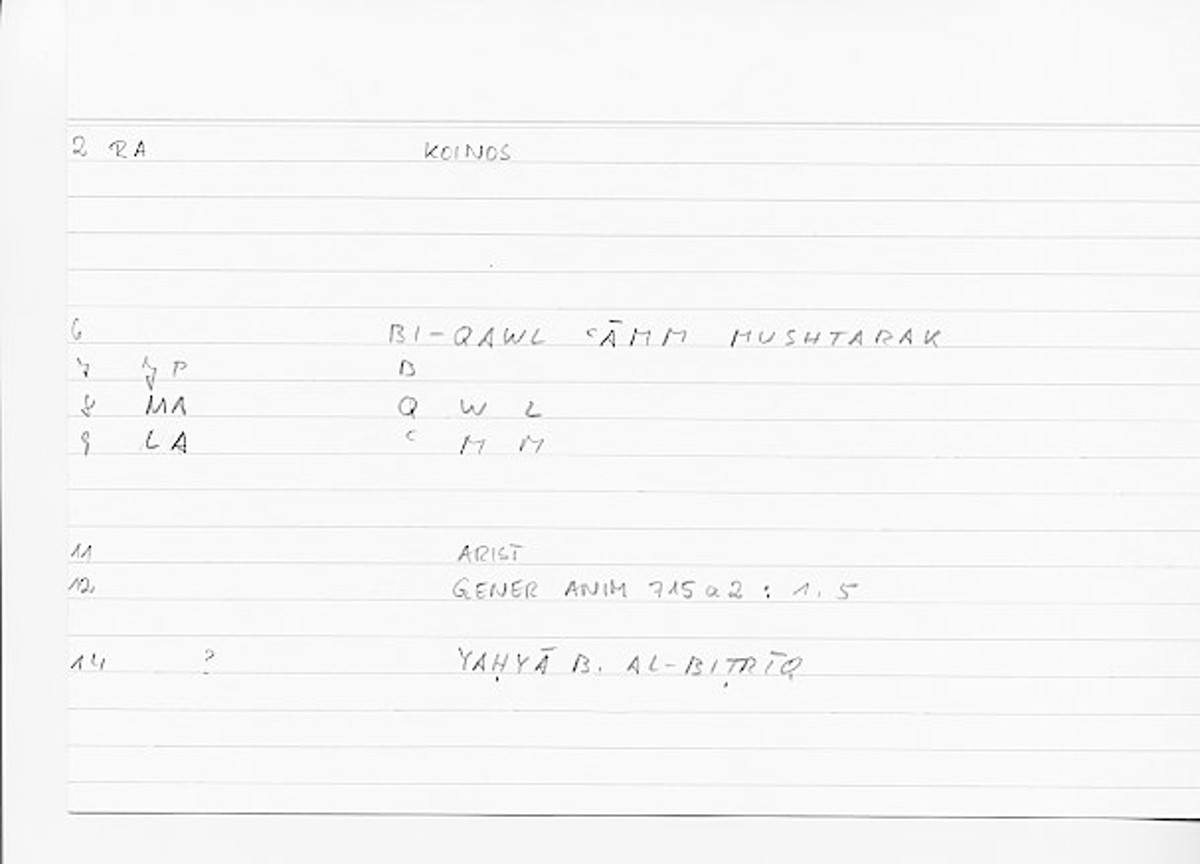 2 RA KOINOS
6 BI-QAWL ʿĀMM MUSHTARAK
7 JP B
8 MA Q W L
9 LA ʿ M M
11 ARIST
12 GENER ANIM 715a2 : 1.5
14 ? YAḤYĀ B. AL-BIṬRĪQ